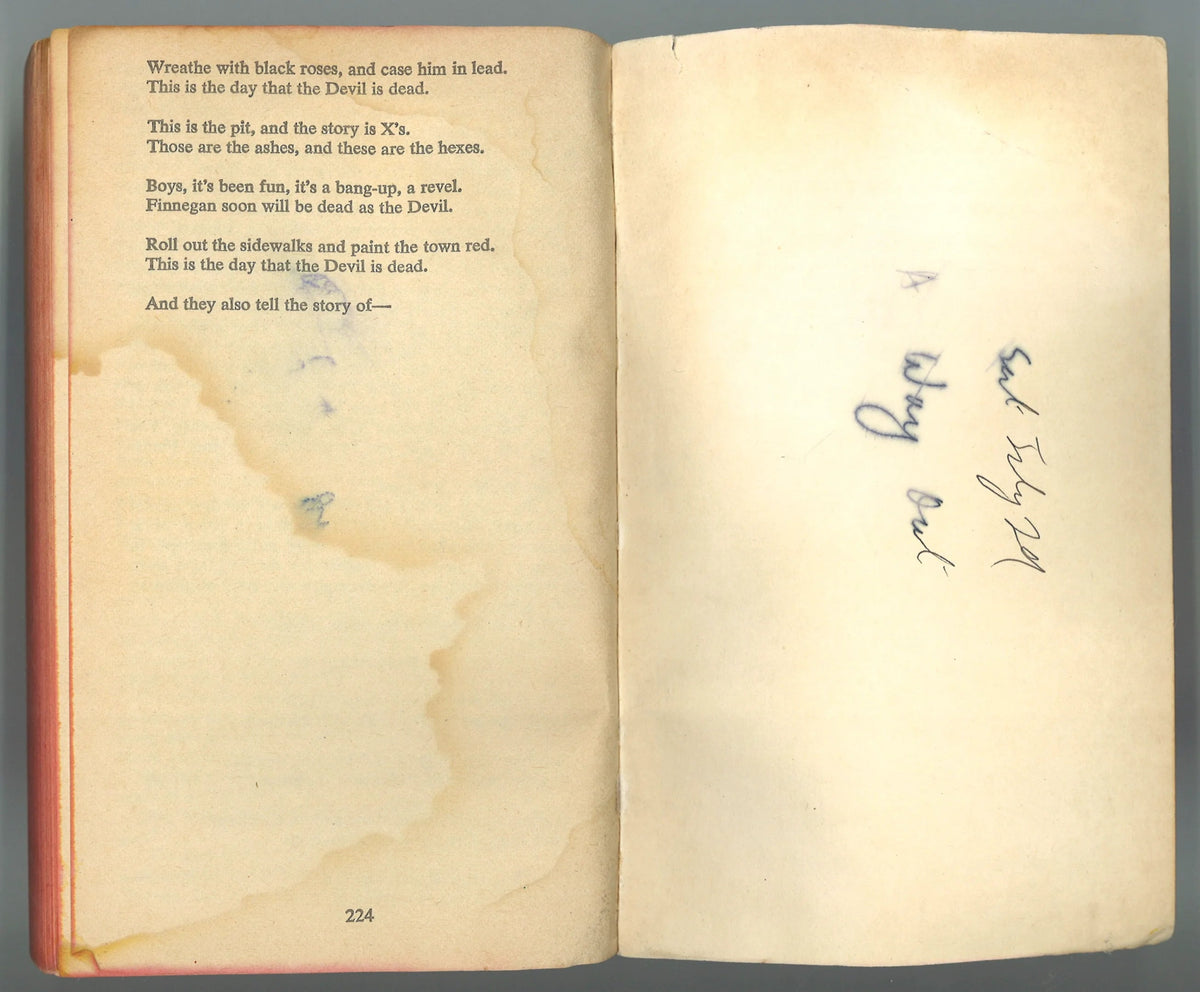 Wreathe with black roses, and case him in lead.
This is the day that the Devil is dead.
This is the pit, and the story is X's.
Those are the ashes, and these are the hexes.
Boys, it's been fun, it's a bang-up, a revel.
Finnegan soon will be dead as the Devil.
Roll out the sidewalks and paint the town red.
This is the day that the Devil is dead.
And they also tell the story of—
224
Sat July 29
A Way Out